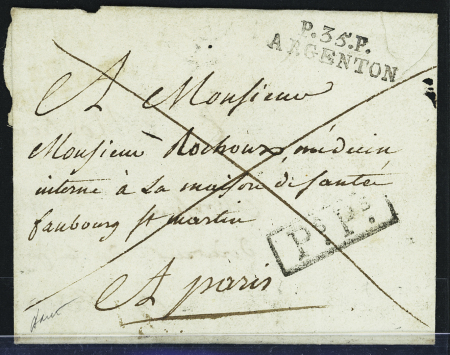 P.35.P.
ARGENTON
A Monsieur
Monsieur Rochoux, médecin
interne à La maison de santée
faubourg st martin
P.P.
A paris